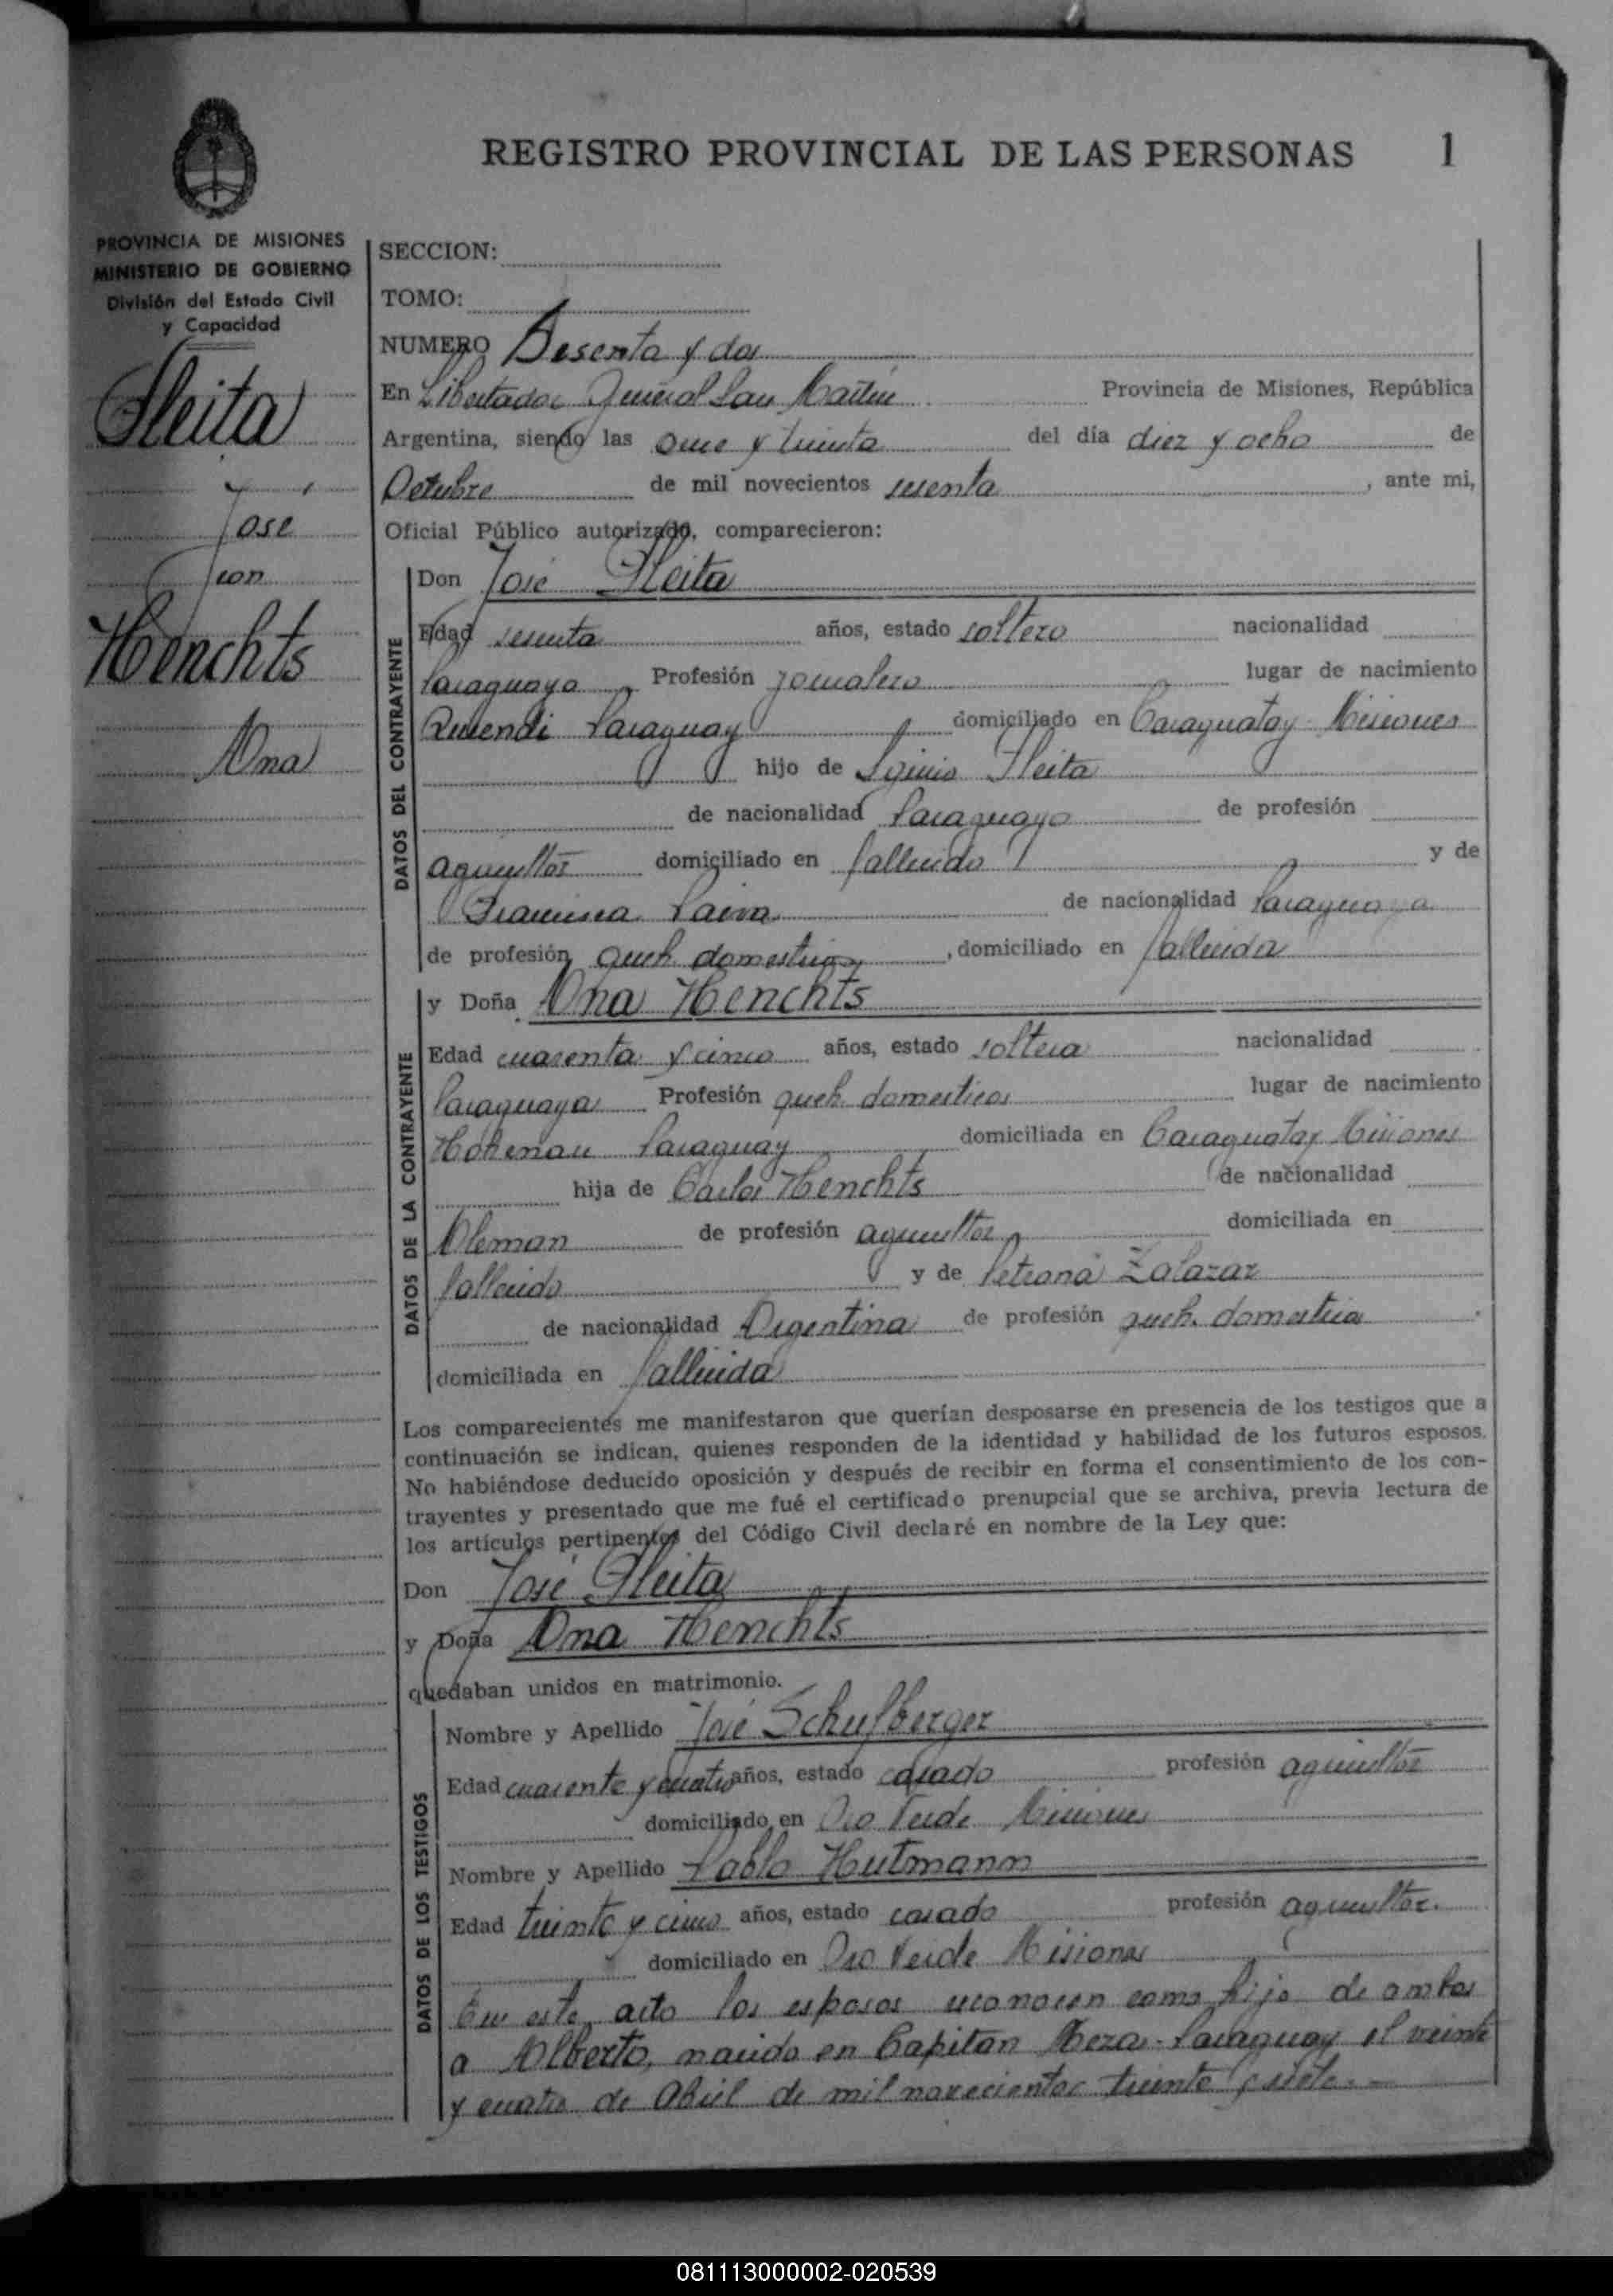 REGISTRO PROVINCIAL DE LAS PERSONAS 1
PROVINCIA DE MISIONES
MINISTERIO DE GOBIERNO
División del Estado Civil
y Capacidad
Fleita
José
con
Henchts
Ana
SECCION:
TOMO:
NUMERO Sesenta y dos
En Libertador General San Martín Provincia de Misiones, República
Argentina, siendo las once y treinta del día diez y ocho de
Octubre de mil novecientos sesenta, ante mi,
Oficial Público autorizado, comparecieron:
DATOS DEL CONTRAYENTE
Don José Fleita
Edad sesenta años, estado soltero nacionalidad
Paraguayo Profesión jornalero lugar de nacimiento
Paraguay domiciliado en Caraguatay Misiones
hijo de Fleita
de nacionalidad Paraguayo de profesión
agricultor domiciliado en fallecido y de
Francisca de nacionalidad Paraguaya
de profesión queh. domesticos, domiciliado en fallecida
DATOS DE LA CONTRAYENTE
y Doña Ana Henchts
Edad cuarenta y cinco años, estado soltera nacionalidad
Paraguaya Profesión queh. domesticos lugar de nacimiento
Hohenau Paraguay domiciliada en Caraguatay Misiones
hija de Carlos Henchts de nacionalidad
Aleman de profesión agricultor domiciliada en
fallecido y de Petrona Zalazar
de nacionalidad Argentina de profesión queh. domestica
domiciliada en fallecida
Los comparecientes me manifestaron que querían desposarse en presencia de los testigos que a
continuación se indican, quienes responden de la identidad y habilidad de los futuros esposos.
No habiéndose deducido oposición y después de recibir en forma el consentimiento de los con-
trayentes y presentado que me fué el certificado prenupcial que se archiva, previa lectura de
los artículos pertinentes del Código Civil declaré en nombre de la Ley que:
Don José Fleita
y Doña Ana Henchts
quedaban unidos en matrimonio.
DATOS DE LOS TESTIGOS
Nombre y Apellido José Schufberger
Edad cuarenta y cuatro años, estado casado profesión agricultor
domiciliado en Oro Verde Misiones
Nombre y Apellido Pablo Hutmann
Edad treinta y cinco años, estado casado profesión agricultor.
domiciliado en Oro Verde Misiones
En este acto los esposos reconocen como hijo de ambos
a Alberto, nacido en Capitan Meza-Paraguay el veinte
y cuatro de Abril de mil novecientos treinta y siete.-
081113000002-020539